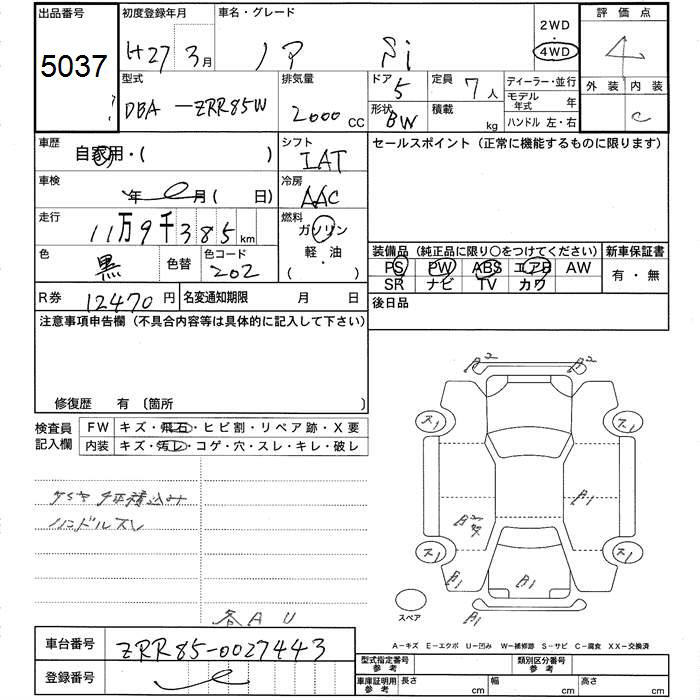 出品番号 初度登録年月 車名・グレード 2WD 評価点
5037 H27 3月 ノア Si 4WD 4
型式 排気量 ドア 5 定員 7人 ディーラー・並行 外装 内装
DBA-ZRR85W 2000 CC 形状 BW 積載 kg モデル年式 年 C
ハンドル 左・右
車歴 自家用・( ) シフト IAT セールスポイント (正常に機能するものに限ります)
車検 年 月 ( 日) 冷房 AAC
走行 11万9千385km 燃料 ガソリン 軽・油 ( ・ )
色 黒 色替 色コード 202 装備品 (純正品に限り○をつけてください) 新車保証書
PS PW ABS エアB AW 有・無
SR ナビ TV カワ
R券 12470円 名変通知期限 月 日 後日品
注意事項申告欄 (不具合内容等は具体的に記入して下さい)
修復歴 有 〔箇所 〕
検査員 FW キズ・飛石・ヒビ割・リペア跡・X要
記入欄 内装 キズ・汚レ・コゲ・穴・スレ・キレ・破レ
ハンドルスレ
各AU
A2 A2
ス1 ス1
A1
ス1 ス1
A1 A1
A1
スペア
A-キズ E-エクボ U-凹み W-補修跡 S-サビ C-腐食 XX-交換済
車台番号 ZRR85-0027443
登録番号
型式指定番号 参考 類別区分番号 参考
車庫証明用 参考 長さ cm 幅 cm 高さ cm